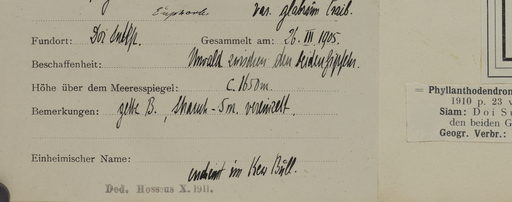 Euphorb. var. glabrum Craib.
Fundort: Doi Sutep. Gesammelt am: 26. III. 1905.
Beschaffenheit: Urwald zwischen den beiden Gipfeln.
Höhe über dem Meeresspiegel: c. 1650 m.
Bemerkungen: gelbe B., Strauch - 5m. vereinzelt.
Einheimischer Name:
im Kew Bull.
Ded. Hosseus X. 1911.
Phyllanthodendron
1910 p. 23 v
Siam: Doi S
den beiden G
Geogr. Verbr.: